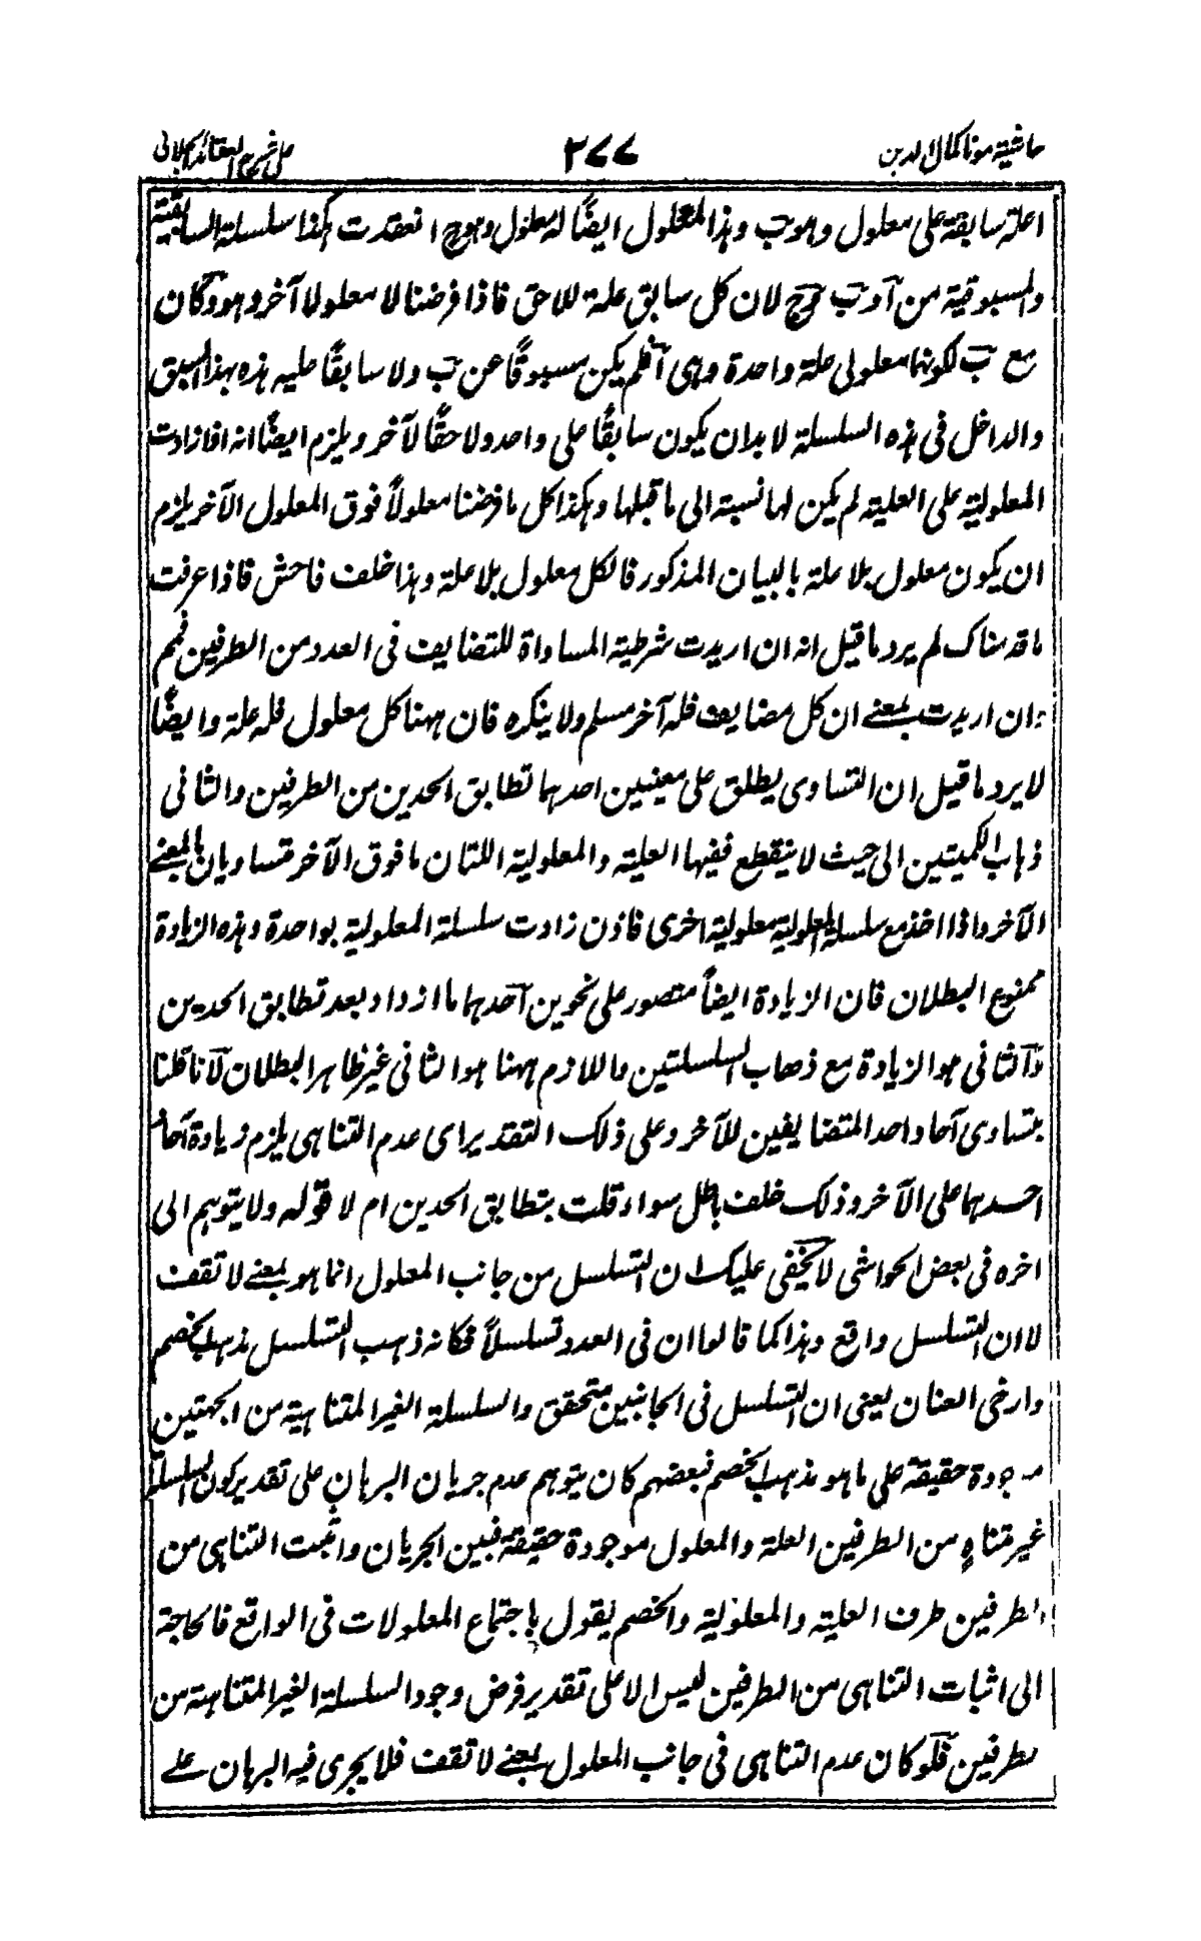 حاشية مولانا كمال الدين
٣٧٧
على شرح العقائد الجلالى
ا علة سابقة على معلول وهو ب وهذا المعلول ايضًا له معلول وهو ج انعقدت هكذا سلسلة السابقية
والمسبوقية من آ و ب و ج لان كل سابق علة للاحق فاذا فرضنا لا معلولا آخر وهو و كان
مع ب لكونهما معلولى علة واحدة وهى آ فلم يكن مسبوقًا عن ب ولا سابقًا عليه هذه بهذا السبق
والداخل فى هذه السلسلة لا بد ان يكون سابقًا على واحد ولاحقًا لآخر ويلزم ايضًا انه اذا زادت
المعلولية على العلية لم يكن لها نسبة الى ما قبلها وهكذا كل ما فرضنا معلولاً فوق المعلول الآخر يلزم
ان يكون معلول بلا علة بالبيان المذكور فالكل معلول بلا علة وهذا خلف فاحش فاذا عرفت
ما قدمناك لم يرد ما قيل انه ان اريدت شرطية المساواة للتضايف فى العدد من الطرفين فمم
ان اريدت بمعنے ان كل مضايف فله آخر مسلم ولا ينكره فان ههنا كل معلول فله علة وايضًا
لا يرد ما قيل ان التساوى يطلق على معينين احدهما تطابق الحدين من الطرفين والثانى
ذهاب الكميتين الى حيث لا ينقطع ففيها العلية والمعلولية اللتان ما فوق الآخر متساويان بالمعنے
الآخر واذا اخذ مع سلسلة المعلولية معلولية اخرى فاذن زادت سلسلة المعلولية بواحدة وهذه الزيادة
ممنوع البطلان فان الزيادة ايضاً متصور على نحوين احدهما ما ازداد بعد تطابق الحدين
والثانى هو الزيادة مع ذهاب السلسلتين واللازم ههنا هو الثانى غير ظاهر البطلان لانا قلنا
بتساوى آحاد احد المتضايفين للآخر وعلى ذلك التقدير اى عدم التناهى يلزم زيادة آحاد
احدهما على الآخر وذلك خلف باطل سواء قلت بتطابق الحدين ام لا قوله ولا يتوهم الى
اخره فى بعض الحواشى لا يخفى عليك ان التسلسل من جانب المعلول انما هو بمعنے لا تقف
لا ان التسلسل واقع وهذا كما قالوا ان فى العدد تسلسلاً فكانه ذهب التسلسل مذهب الخصم
وارخى العنان يعنى ان التسلسل فى الجانبين متحقق والسلسلة الغير المتناهية من الجهتين
موجودة حقيقة على ما هو مذهب الخصم فبعضهم كان يتوهم عدم جريان البرهان على تقدير كون السلسلة
غير متناهٍ من الطرفين العلة والمعلول موجودة حقيقة فبين الجريان واثبت التناهى من
الطرفين طرف العلية والمعلولية والخصم يقول باجتماع المعلولات فى الواقع فالحاجة
الى اثبات التناهى من الطرفين ليس الا على تقدير فرض وجود السلسلة الغير المتناهية من
الطرفين فلو كان عدم التناهى فى جانب المعلول بمعنے لا تقف فلا يجرى فيه البرهان علے